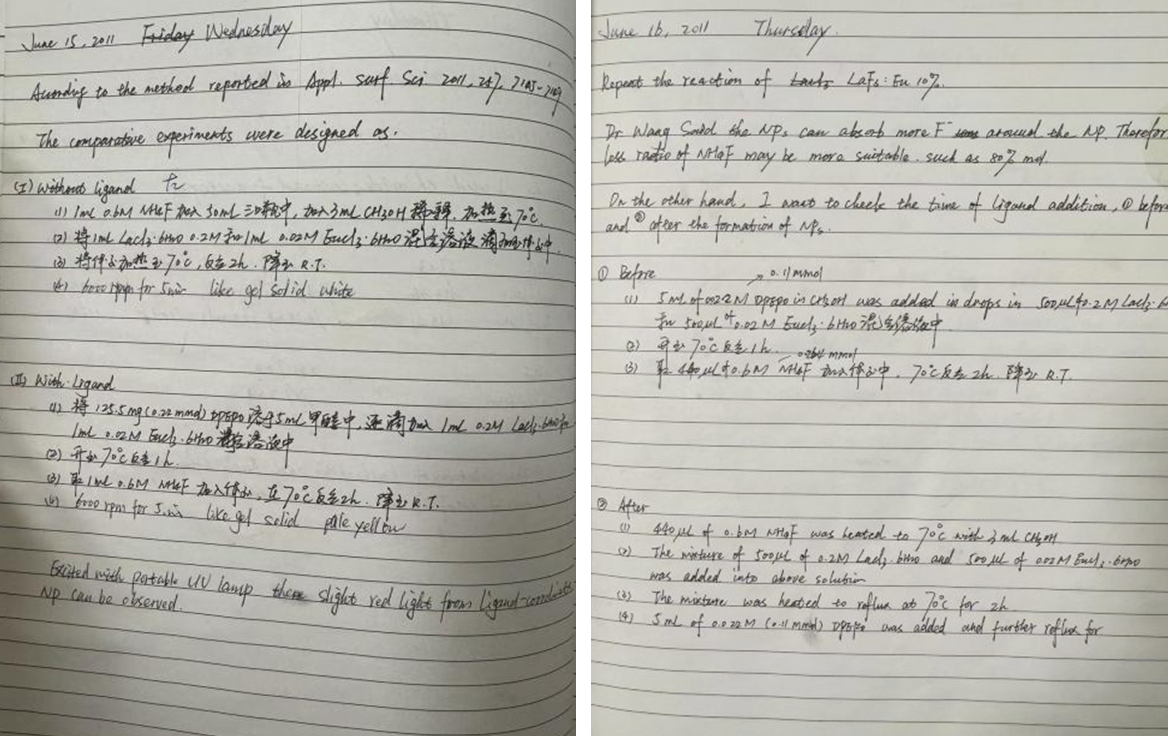 June 15, 2011 Friday Wednesday
According to the method reported in Appl. Surf Sci 2011, 257, 7165-7169
The comparative experiments were designed as.
(I) Without ligand
(1) 1mL 0.6M NH4F 加入50mL三口瓶中, 加入3mL CH3OH 稀释, 加热至70℃.
(2) 将1mL LaCl3·6H2O 0.2M和1mL 0.02M EuCl3·6H2O 混合溶液滴加到体系中
(3) 将体系加热至70℃, 反应2h. 降至 R.T.
(4) 6000 rpm for 5min like gel solid white
(II) With Ligand
(1) 将125.5mg (0.22mmol) DPEPO 溶于5mL甲醇中, 逐滴加入 1mL 0.2M LaCl3·6H2O和
1mL 0.02M EuCl3·6H2O 混合溶液中
(2) 升至70℃反应1h.
(3) 取1mL 0.6M NH4F 加入体系, 在70℃反应2h. 降至 R.T.
(4) 6000 rpm for 5min like gel solid pale yellow
Excited with portable UV lamp slight red light from ligand-coordinate
NP can be observed.
June 16, 2011 Thursday.
Repeat the reaction of LaCl3 LaF3:Eu 10%.
Dr Wang Said the NPs can absorb more F- around the NP. Therefor
less ratio of NH4F may be more suitable. such as 80% mol.
On the other hand, I want to check the time of ligand addition, ① before
and ② after the formation of NPs.
① Before
0.11mmol
(1) 5mL of 0.022M DPEPO in CH3OH was added in drops in 500μL of 0.2M LaCl3·6
和 500μL of 0.02M EuCl3·6H2O 混合溶液中
(2) 升至70℃反应1h.
0.264 mmol
(3) 取 440μL of 0.6M NH4F 加入体系中. 70℃反应2h. 降至 R.T.
② After
(1) 440μL of 0.6M NH4F was heated to 70℃ with 3mL CH3OH
(2) The mixture of 500μL of 0.2M LaCl3·6H2O and 500μL of 0.02M EuCl3·6H2O
was added into above solution
(3) The mixture was heated to reflux at 70℃ for 2h
(4) 5mL of 0.022M (0.11mmol) DPEPO was added and further reflux for